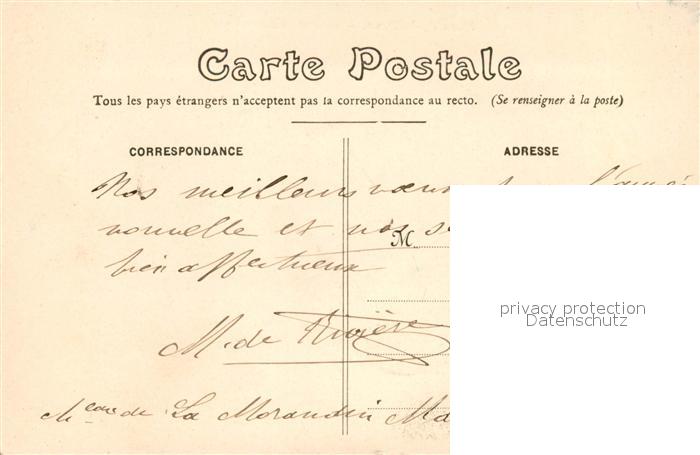 Carte Postale
Tous les pays étrangers n'acceptent pas la correspondance au recto. (Se renseigner à la poste)
CORRESPONDANCE
ADRESSE
Nos meilleurs vœux
nouvelle et nos
M
bien affectueux
M. de Rivière
de La Morandin
privacy protection
Datenschutz